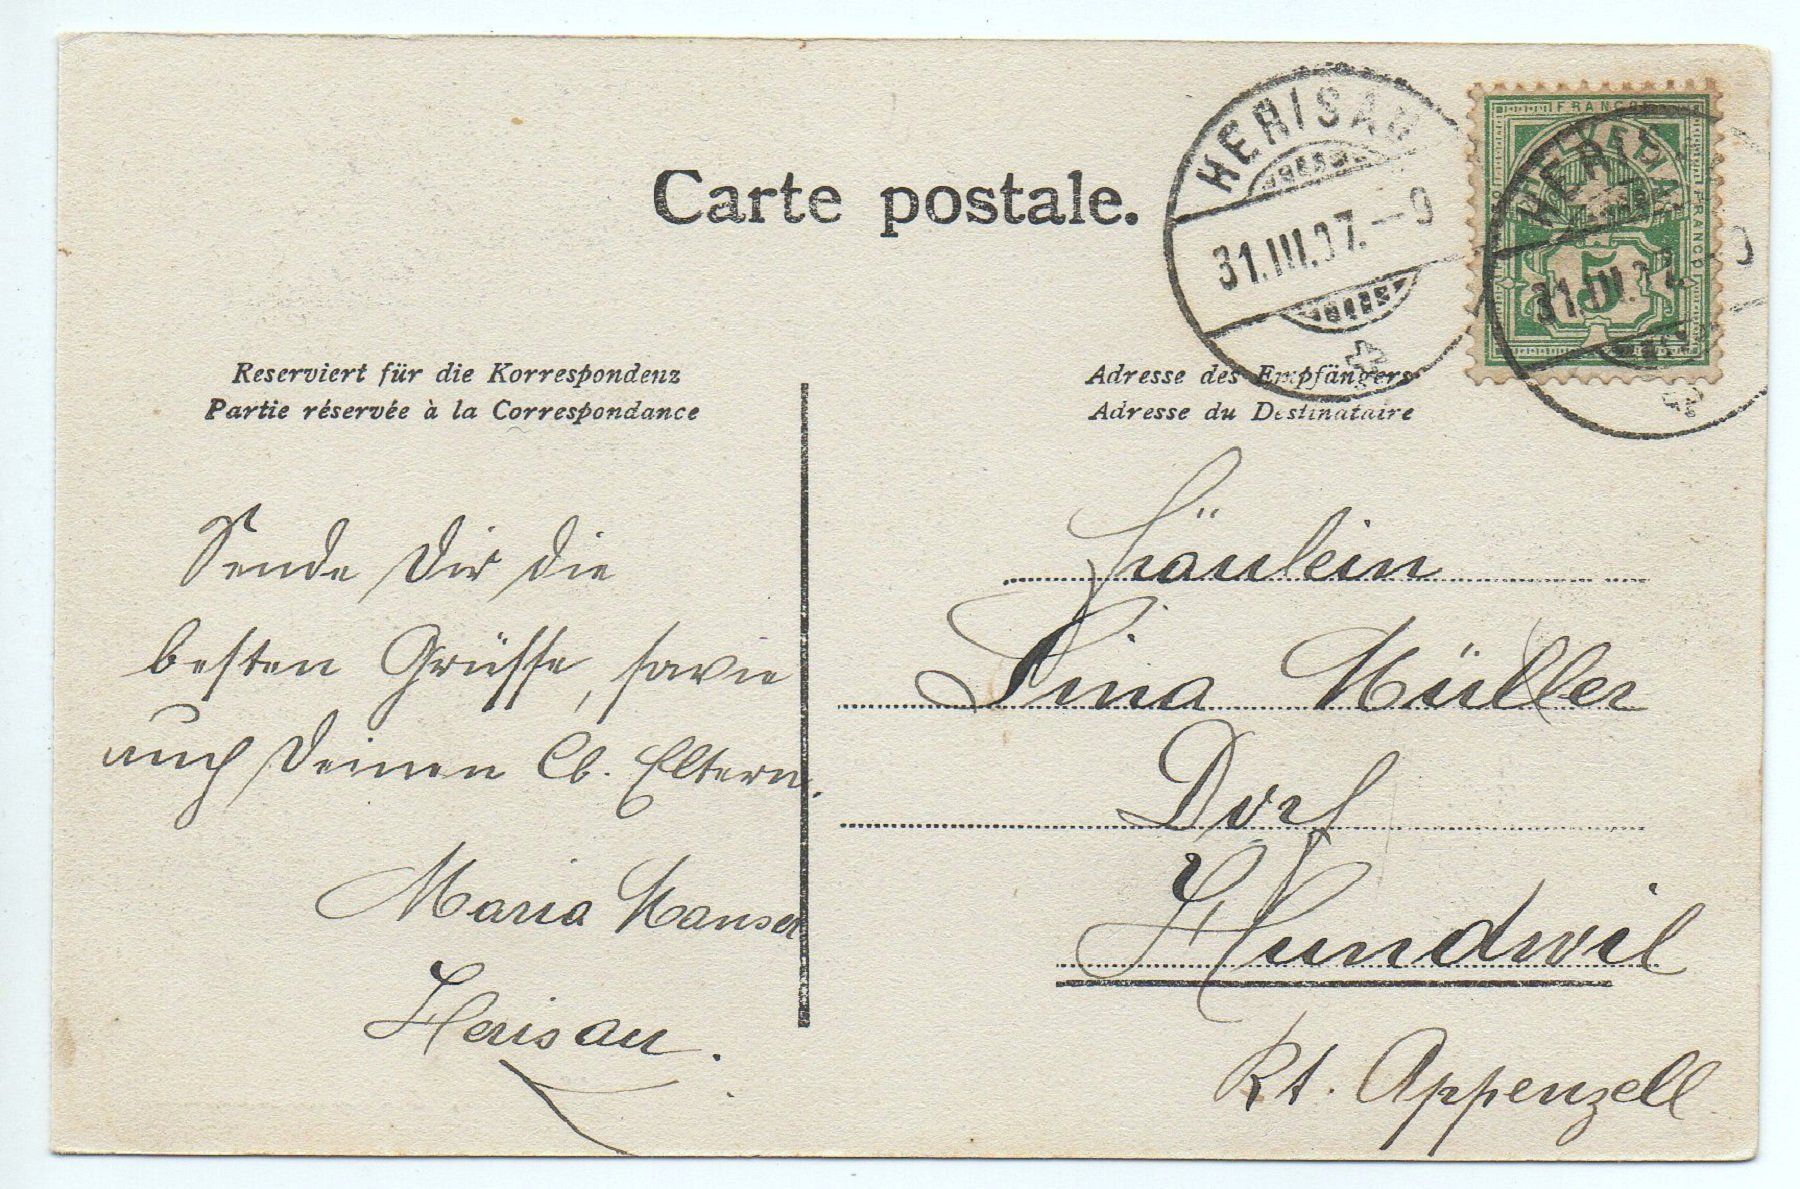 Carte postale.
HERISAU
31.III.07.–9
FRANCO
HELVETIA
FRANCO
5
HERISAU
31.III.07.–9
Reserviert für die Korrespondenz
Partie réservée à la Correspondance
Adresse des Empfängers
Adresse du Destinataire
Sende Dir die
besten Grüsse, sowie
auch Deinen lb. Eltern.
Maria Manser
Herisau.
Fräulein
Lina Müller
Dorf
Hundwil
Kt. Appenzell